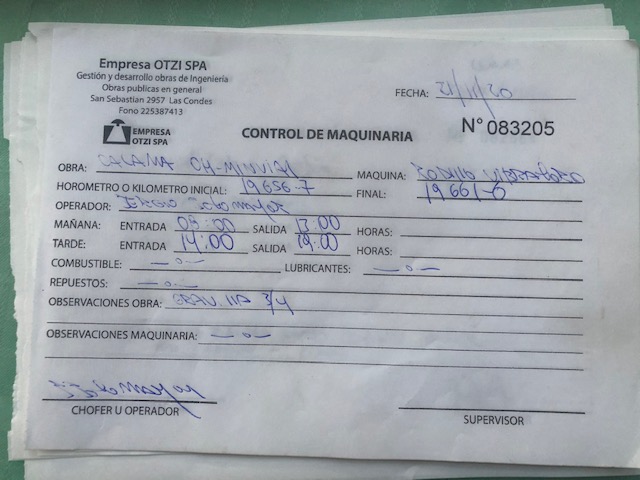 Empresa OTZI SPA
Gestión y desarrollo obras de Ingeniería
Obras publicas en general
San Sebastian 2957 Las Condes
Fono 225387413
FECHA: 21/11/20
EMPRESA
OTZI SPA
CONTROL DE MAQUINARIA
N° 083205
OBRA: CALAMA MAQUINA: Rodillo
HOROMETRO O KILOMETRO INICIAL: 19656.7 FINAL: 19661.6
OPERADOR: Sotomayor
MAÑANA: ENTRADA 08:00 SALIDA 13:00 HORAS:
TARDE: ENTRADA 14:00 SALIDA 19:00 HORAS:
COMBUSTIBLE: —.— LUBRICANTES: —.—
REPUESTOS: —.—
OBSERVACIONES OBRA: 3/4
OBSERVACIONES MAQUINARIA: —.—
Sotomayor
CHOFER U OPERADOR
SUPERVISOR